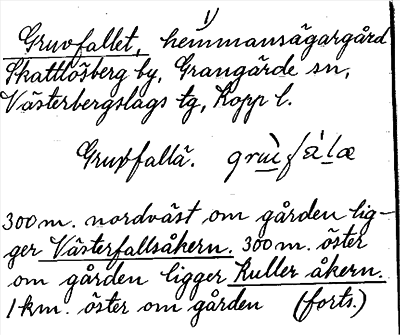 1)
Gruvfallet, hemmansägargård
Skattlösberg by, Grangärde sn,
Västerbergslags tg, Kopp l.
Gruvfallä. grùfàlæ
300 m. nordväst om gården lig-
ger Västerfallsåkern. 300 m. öster
om gården ligger Kuller åkern.
1 km. öster om gården (forts.)